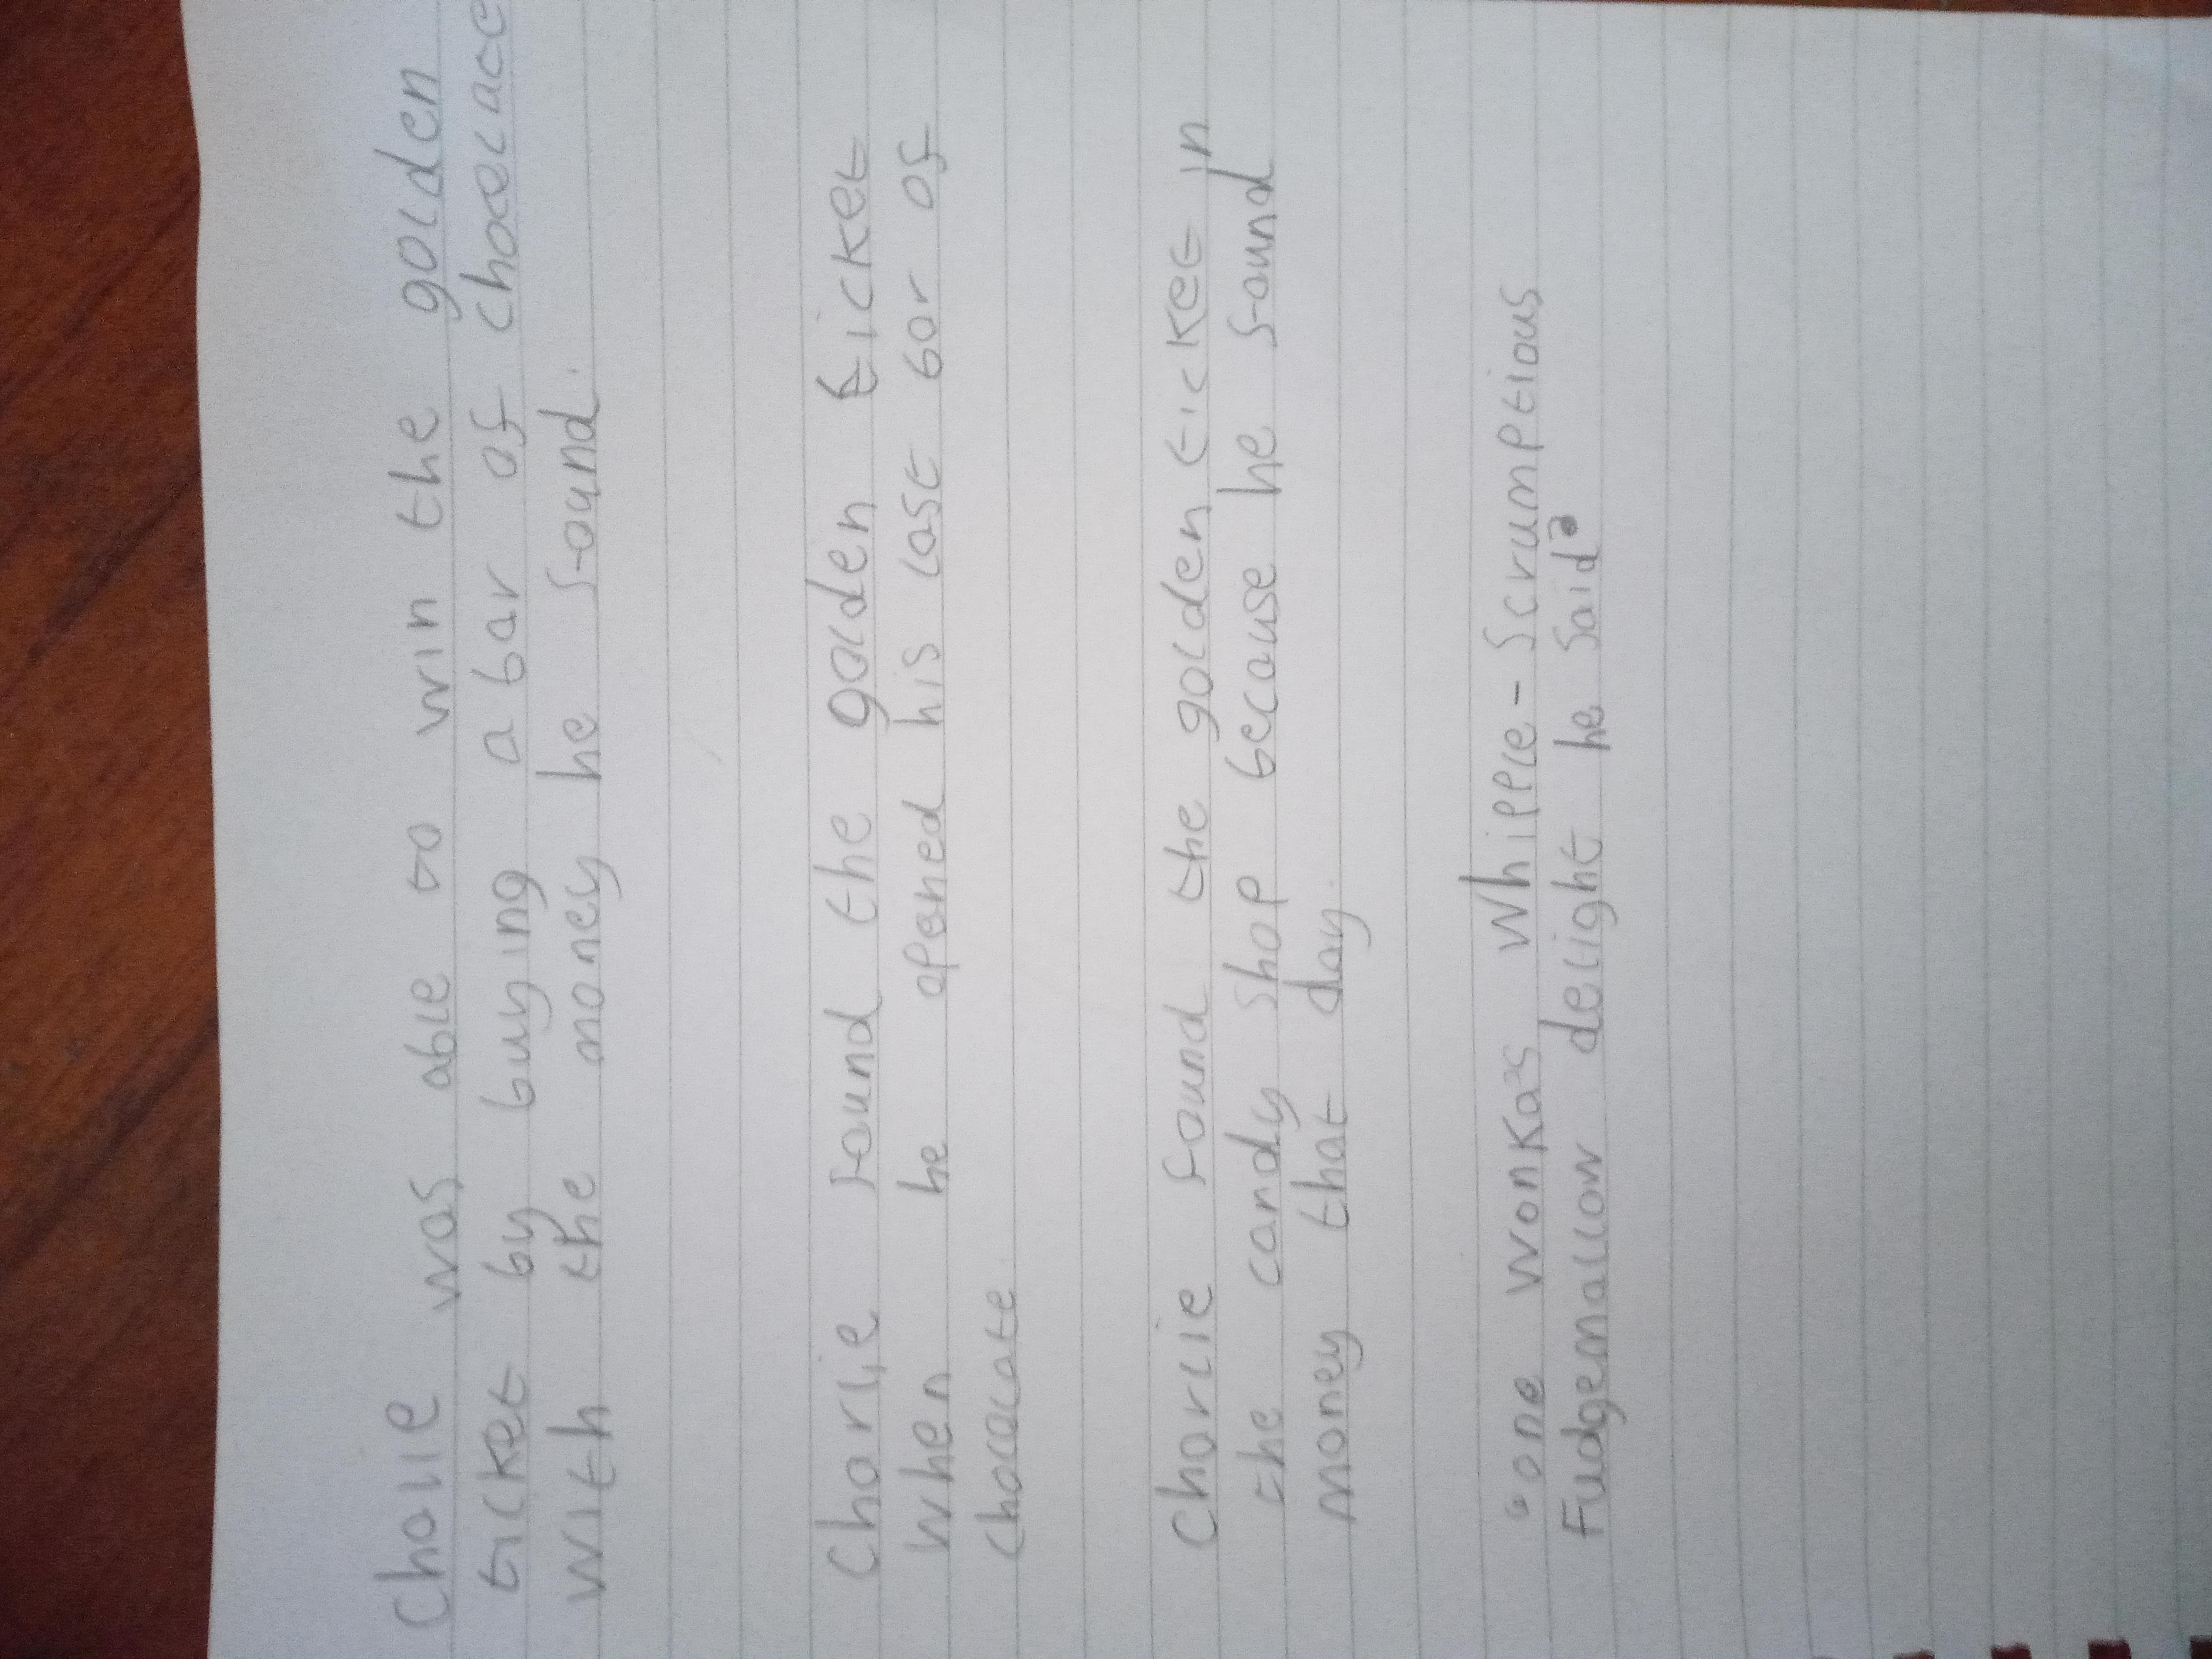 Cholie was able to win the golden
ticket by buying a bar of chocolace
with the money he found.
Charlie found the golden ticket
when he opened his last bar of
chocolate.
Charlie found the golden ticket in
the candy shop because he found
money that day.
"one wonka's Whipple-Scrumptious
Fudgemallow delight he said"